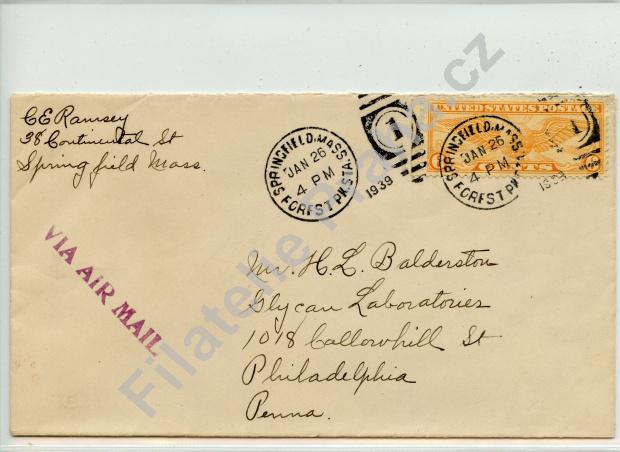 C E Ramsey
38 Continental St
Springfield Mass.
SPRINGFIELD, MASS.
JAN 26
4 PM
1939
FOREST PK. STA.
1
UNITED STATES POSTAGE
SPRINGFIELD, MASS.
JAN 26
4 PM
1939
FOREST PK.
1
VIA AIR MAIL
Mr. H. L. Balderston
Glycan Laboratories
1018 Callowhill St
Philadelphia
Penna.